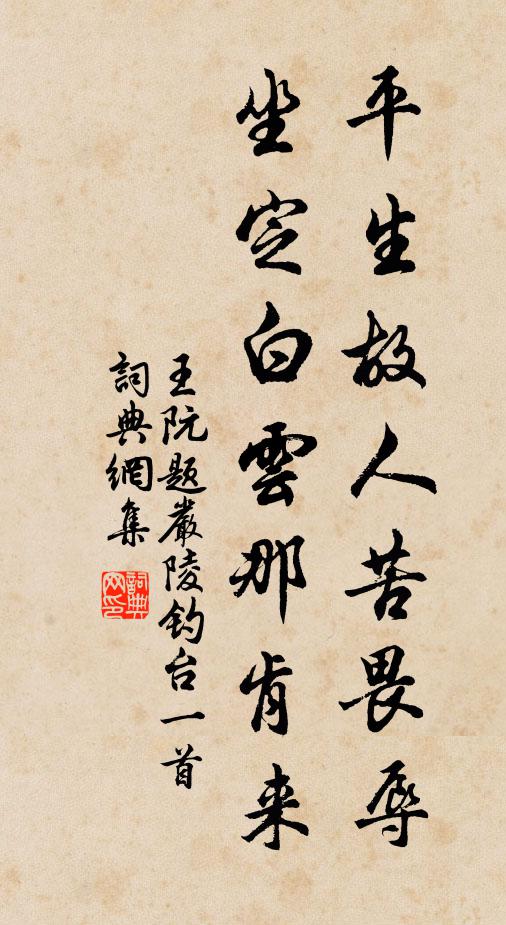 平生故人苦畏辱
坐定白雲那肯来
王阮题嚴陵钓台一首
詞典網集
詞典網印